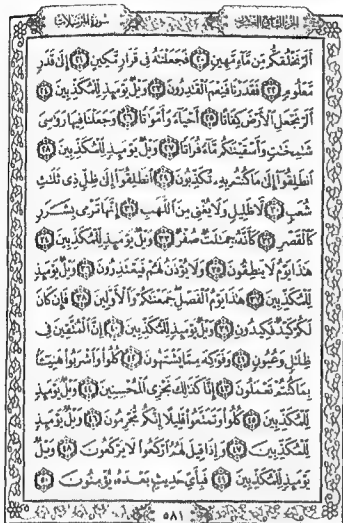 الجزء التاسع والعشرون سورة المرسلات
أَلَمْ نَخْلُقكُّم مِّن مَّآءٍ مَّهِينٍ ﴿٢٠﴾ فَجَعَلْنَٰهُ فِى قَرَارٍ مَّكِينٍ ﴿٢١﴾ إِلَىٰ قَدَرٍ
مَّعْلُومٍ ﴿٢٢﴾ فَقَدَرْنَا فَنِعْمَ ٱلْقَٰدِرُونَ ﴿٢٣﴾ وَيْلٌ يَوْمَئِذٍ لِّلْمُكَذِّبِينَ ﴿٢٤﴾
أَلَمْ نَجْعَلِ ٱلْأَرْضَ كِفَاتًا ﴿٢٥﴾ أَحْيَآءً وَأَمْوَٰتًا ﴿٢٦﴾ وَجَعَلْنَا فِيهَا رَوَٰسِىَ
شَٰمِخَٰتٍ وَأَسْقَيْنَٰكُم مَّآءً فُرَاتًا ﴿٢٧﴾ وَيْلٌ يَوْمَئِذٍ لِّلْمُكَذِّبِينَ ﴿٢٨﴾
ٱنطَلِقُوٓا۟ إِلَىٰ مَا كُنتُم بِهِۦ تُكَذِّبُونَ ﴿٢٩﴾ ٱنطَلِقُوٓا۟ إِلَىٰ ظِلٍّ ذِى ثَلَٰثِ
شُعَبٍ ﴿٣٠﴾ لَّا ظَلِيلٍ وَلَا يُغْنِى مِنَ ٱللَّهَبِ ﴿٣١﴾ إِنَّهَا تَرْمِى بِشَرَرٍ
كَٱلْقَصْرِ ﴿٣٢﴾ كَأَنَّهُۥ جِمَٰلَتٌ صُفْرٌ ﴿٣٣﴾ وَيْلٌ يَوْمَئِذٍ لِّلْمُكَذِّبِينَ ﴿٣٤﴾
هَٰذَا يَوْمُ لَا يَنطِقُونَ ﴿٣٥﴾ وَلَا يُؤْذَنُ لَهُمْ فَيَعْتَذِرُونَ ﴿٣٦﴾ وَيْلٌ يَوْمَئِذٍ
لِّلْمُكَذِّبِينَ ﴿٣٧﴾ هَٰذَا يَوْمُ ٱلْفَصْلِ جَمَعْنَٰكُمْ وَٱلْأَوَّلِينَ ﴿٣٨﴾ فَإِن كَانَ
لَكُمْ كَيْدٌ فَكِيدُونِ ﴿٣٩﴾ وَيْلٌ يَوْمَئِذٍ لِّلْمُكَذِّبِينَ ﴿٤٠﴾ إِنَّ ٱلْمُتَّقِينَ فِى
ظِلَٰلٍ وَعُيُونٍ ﴿٤١﴾ وَفَوَٰكِهَ مِمَّا يَشْتَهُونَ ﴿٤٢﴾ كُلُوا۟ وَٱشْرَبُوا۟ هَنِيٓـًٔۢا
بِمَا كُنتُمْ تَعْمَلُونَ ﴿٤٣﴾ إِنَّا كَذَٰلِكَ نَجْزِى ٱلْمُحْسِنِينَ ﴿٤٤﴾ وَيْلٌ يَوْمَئِذٍ
لِّلْمُكَذِّبِينَ ﴿٤٥﴾ كُلُوا۟ وَتَمَتَّعُوا۟ قَلِيلًا إِنَّكُم مُّجْرِمُونَ ﴿٤٦﴾ وَيْلٌ يَوْمَئِذٍ
لِّلْمُكَذِّبِينَ ﴿٤٧﴾ وَإِذَا قِيلَ لَهُمُ ٱرْكَعُوا۟ لَا يَرْكَعُونَ ﴿٤٨﴾ وَيْلٌ
يَوْمَئِذٍ لِّلْمُكَذِّبِينَ ﴿٤٩﴾ فَبِأَىِّ حَدِيثٍۭ بَعْدَهُۥ يُؤْمِنُونَ ﴿٥٠﴾
٥٨١